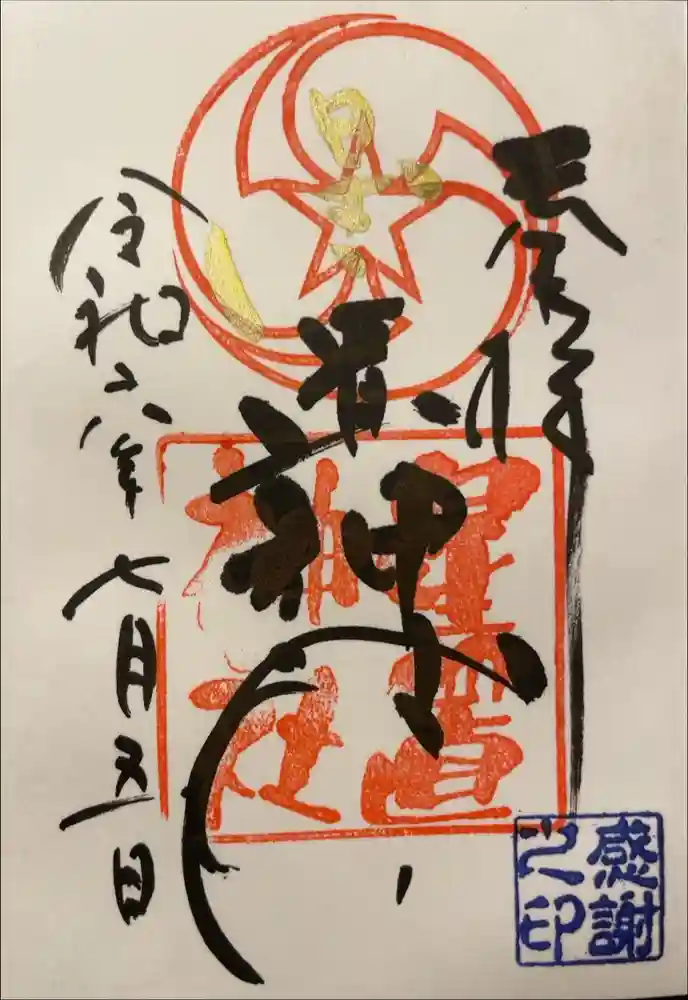 奉拝
星置神社
星置
神社
令和六年七月五日
感謝
之印